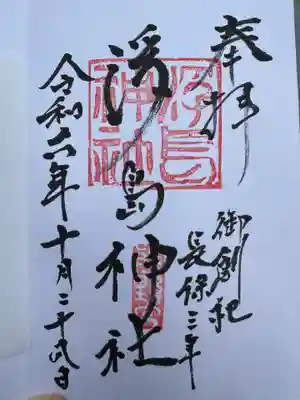 奉拝
御創祀
長保三年
浮島神社
浮島
神社
令和六年十月二十八日